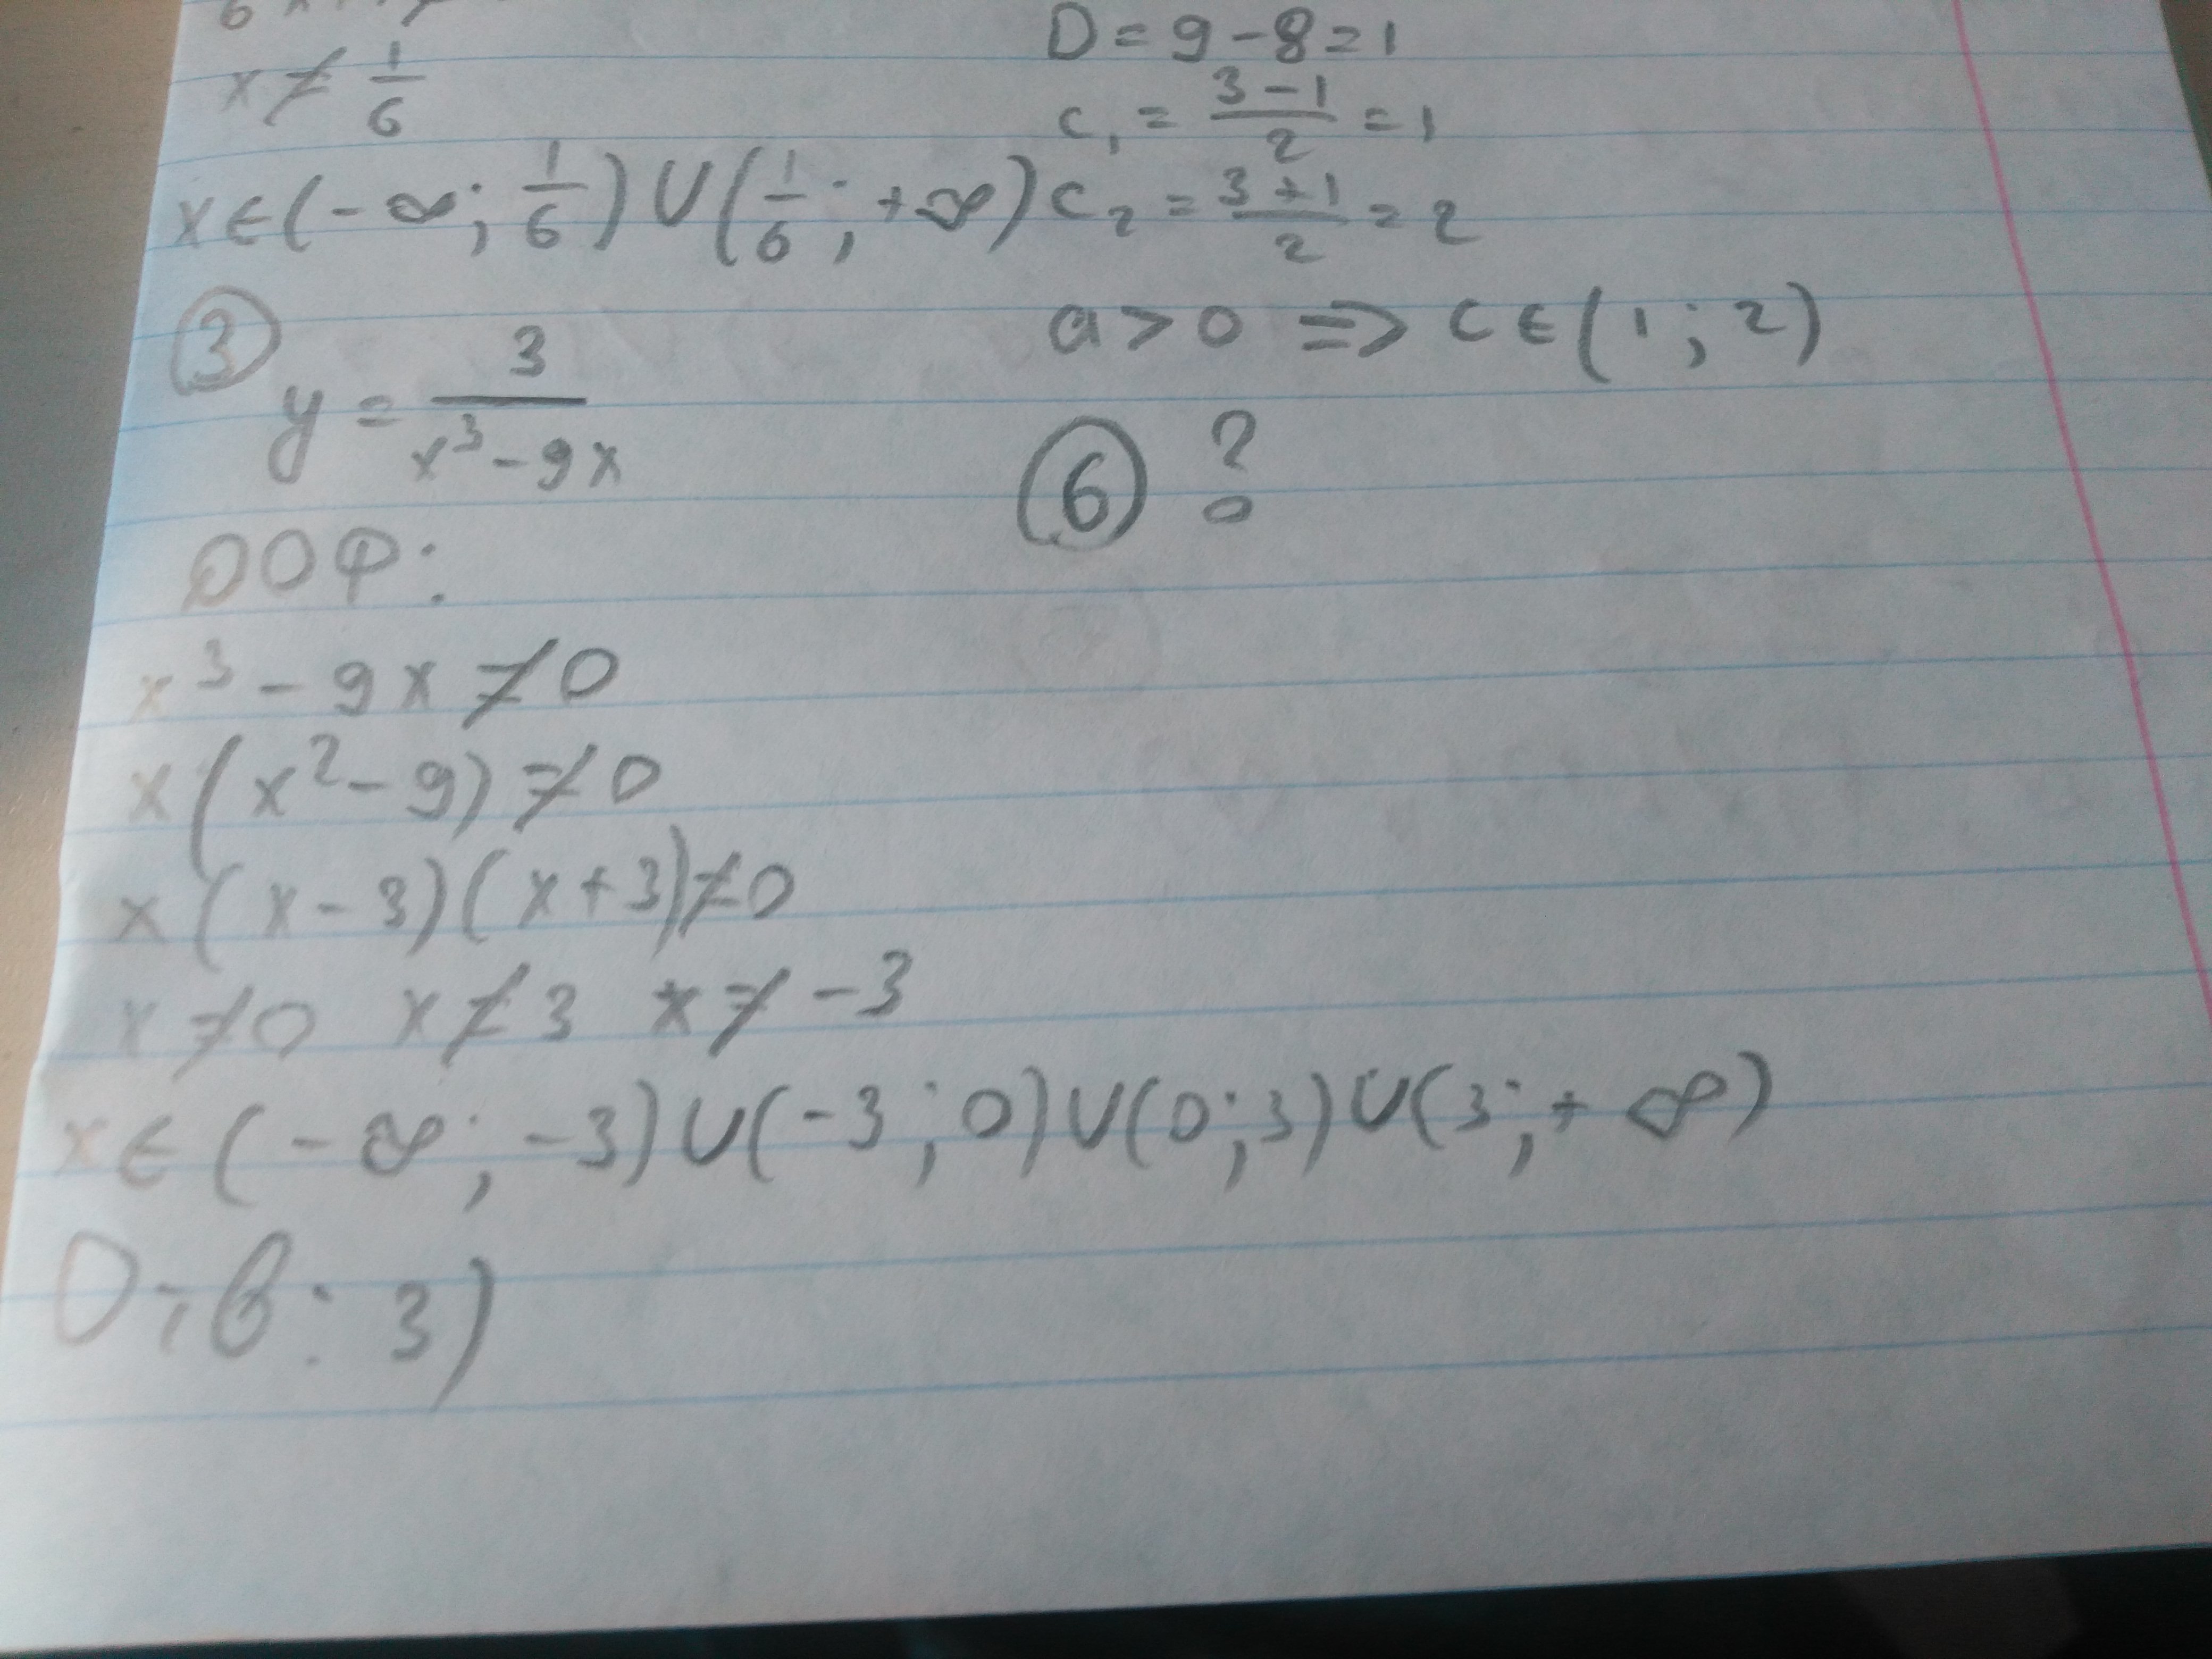 x ≠ 1/6
x ∈ (-∞; 1/6) ∪ (1/6; +∞)
③
y = 3/(x³ - 9x)
ООФ:
x³ - 9x ≠ 0
x(x² - 9) ≠ 0
x(x - 3)(x + 3) ≠ 0
x ≠ 0 x ≠ 3 x ≠ -3
x ∈ (-∞; -3) ∪ (-3; 0) ∪ (0; 3) ∪ (3; +∞)
Отв: 3)
D = 9 - 8 = 1
c₁ = (3 - 1)/2 = 1
c₂ = (3 + 1)/2 = 2
a > 0 => c ∈ (1; 2)
⑥ ?